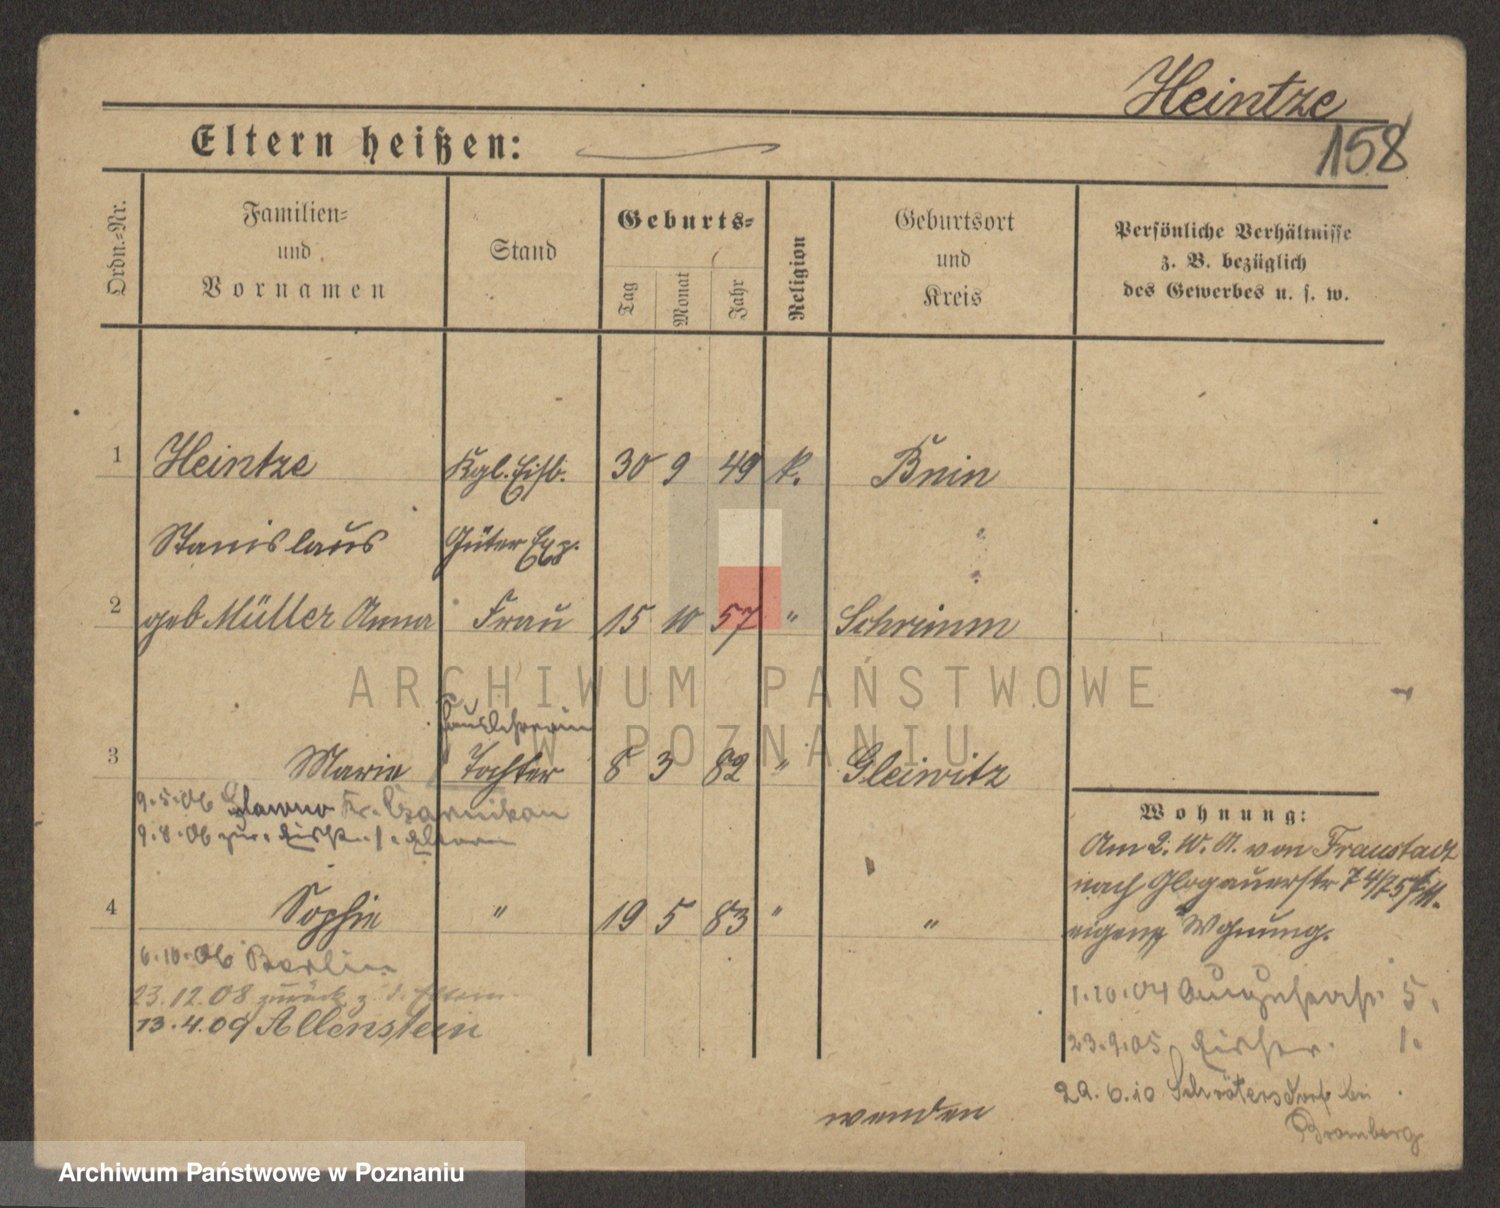 Heintze
158
Eltern heißen:
Ordn.-Nr.
Familien-
und
Vornamen
Stand
Geburts-
Tag
Monat
Jahr
Religion
Geburtsort
und
Kreis
Persönliche Verhältnisse
z. B. bezüglich
des Gewerbes u. s. w.
1 Heintze Kgl. Eisb. 30 9 49 k. Bnin
Stanislaus Güter Exp.
2 geb Müller Anna Frau 15 10 57 " Schrimm
ARCHIWUM PAŃSTWOWE
W POZNANIU
Hauslehrerin
3 Marie Tochter 8 3 82 " Gleiwitz
9.5.06 Kr. Czarnikau
9.8.06 zur. Eltern
4 Sophie " 19 5 83 " "
6.10.06 Berlin
23.12.08 zurück z. d. Eltern
13.4.09 Allenstein
Wohnung:
Am 2. W. A. von Fraustadt
nach Glogauerstr 74/75
eigene Wohnung.
1.10.04 Augustastr. 5.
23.9.05 1.
29.6.10 Schröttersdorf bei
Bromberg
wenden
Archiwum Państwowe w Poznaniu